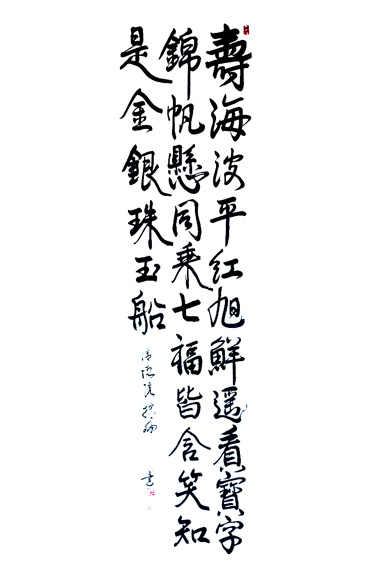 壽海波平紅旭鮮遥看寶字
錦帆懸同乗七福皆含笑知
是金銀珠玉船